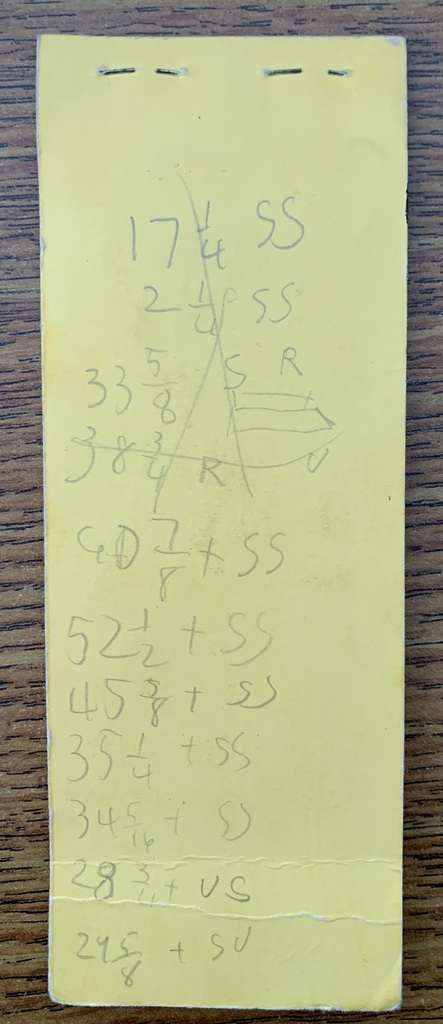 17 1/4 SS
2 1/4 SS
33 5/8 S R
38 3/4 R U
40 7/8 + SS
52 1/2 + SS
45 5/8 + SS
35 1/4 + SS
34 5/16 + SS
28 + US
29 5/8 + SU